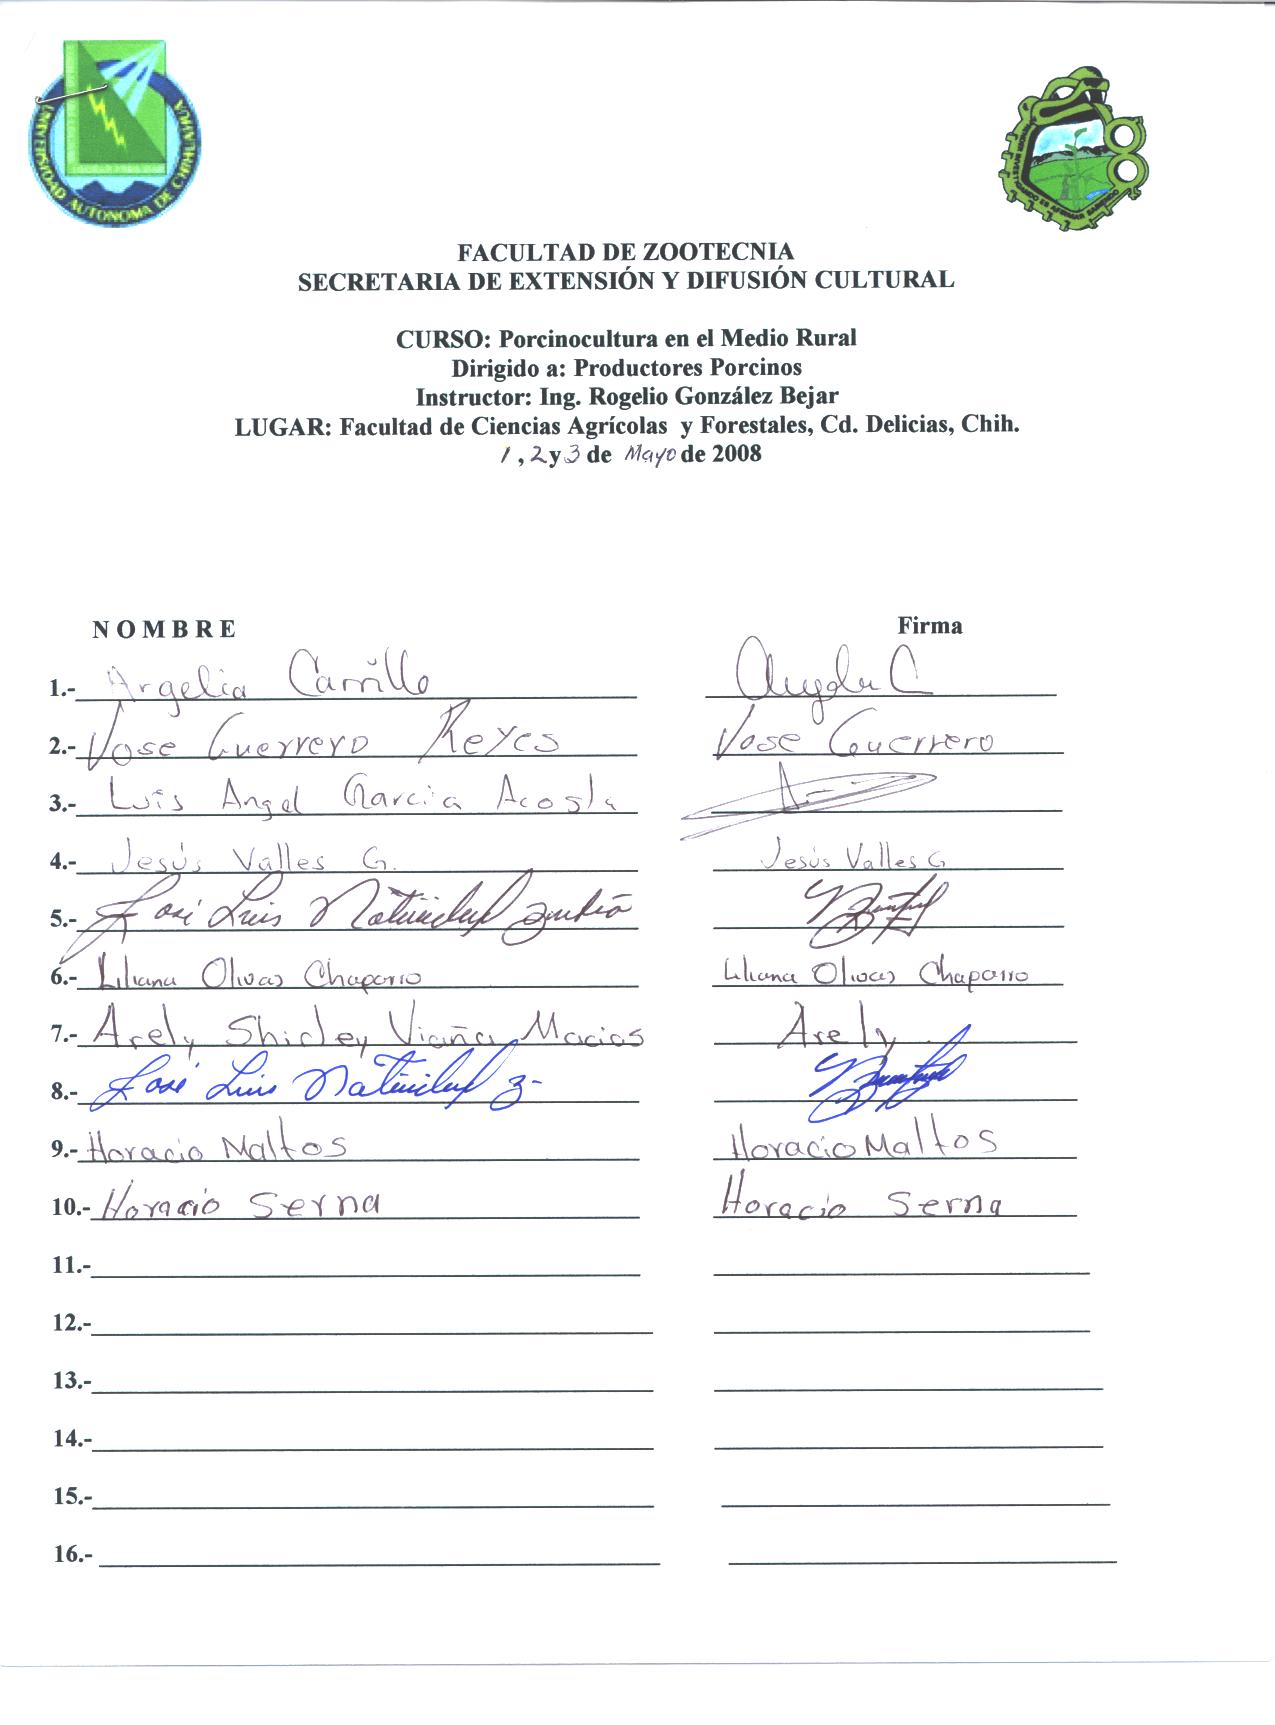 UNIVERSIDAD AUTONOMA DE CHIHUAHUA
FACULTAD DE ZOOTECNIA
SECRETARIA DE EXTENSIÓN Y DIFUSIÓN CULTURAL
CURSO: Porcinocultura en el Medio Rural
Dirigido a: Productores Porcinos
Instructor: Ing. Rogelio González Bejar
LUGAR: Facultad de Ciencias Agrícolas y Forestales, Cd. Delicias, Chih.
1, 2 y 3 de Mayo de 2008
NOMBRE Firma
1.- Argelia Carrillo
2.- Jose Guerrero Reyes Jose Guerrero
3.- Luis Angel Garcia Acosta
4.- Jesús Valles G. Jesús Valles G
5.- José Luis Natividad
6.- Liliana Olivas Chaparro Liliana Olivas Chaparro
7.- Arely Shirley Macias Arely
8.- José Luis Natividad Z-
9.- Horacio Maltos Horacio Maltos
10.- Horacio Serna Horacio Serna
11.-
12.-
13.-
14.-
15.-
16.-